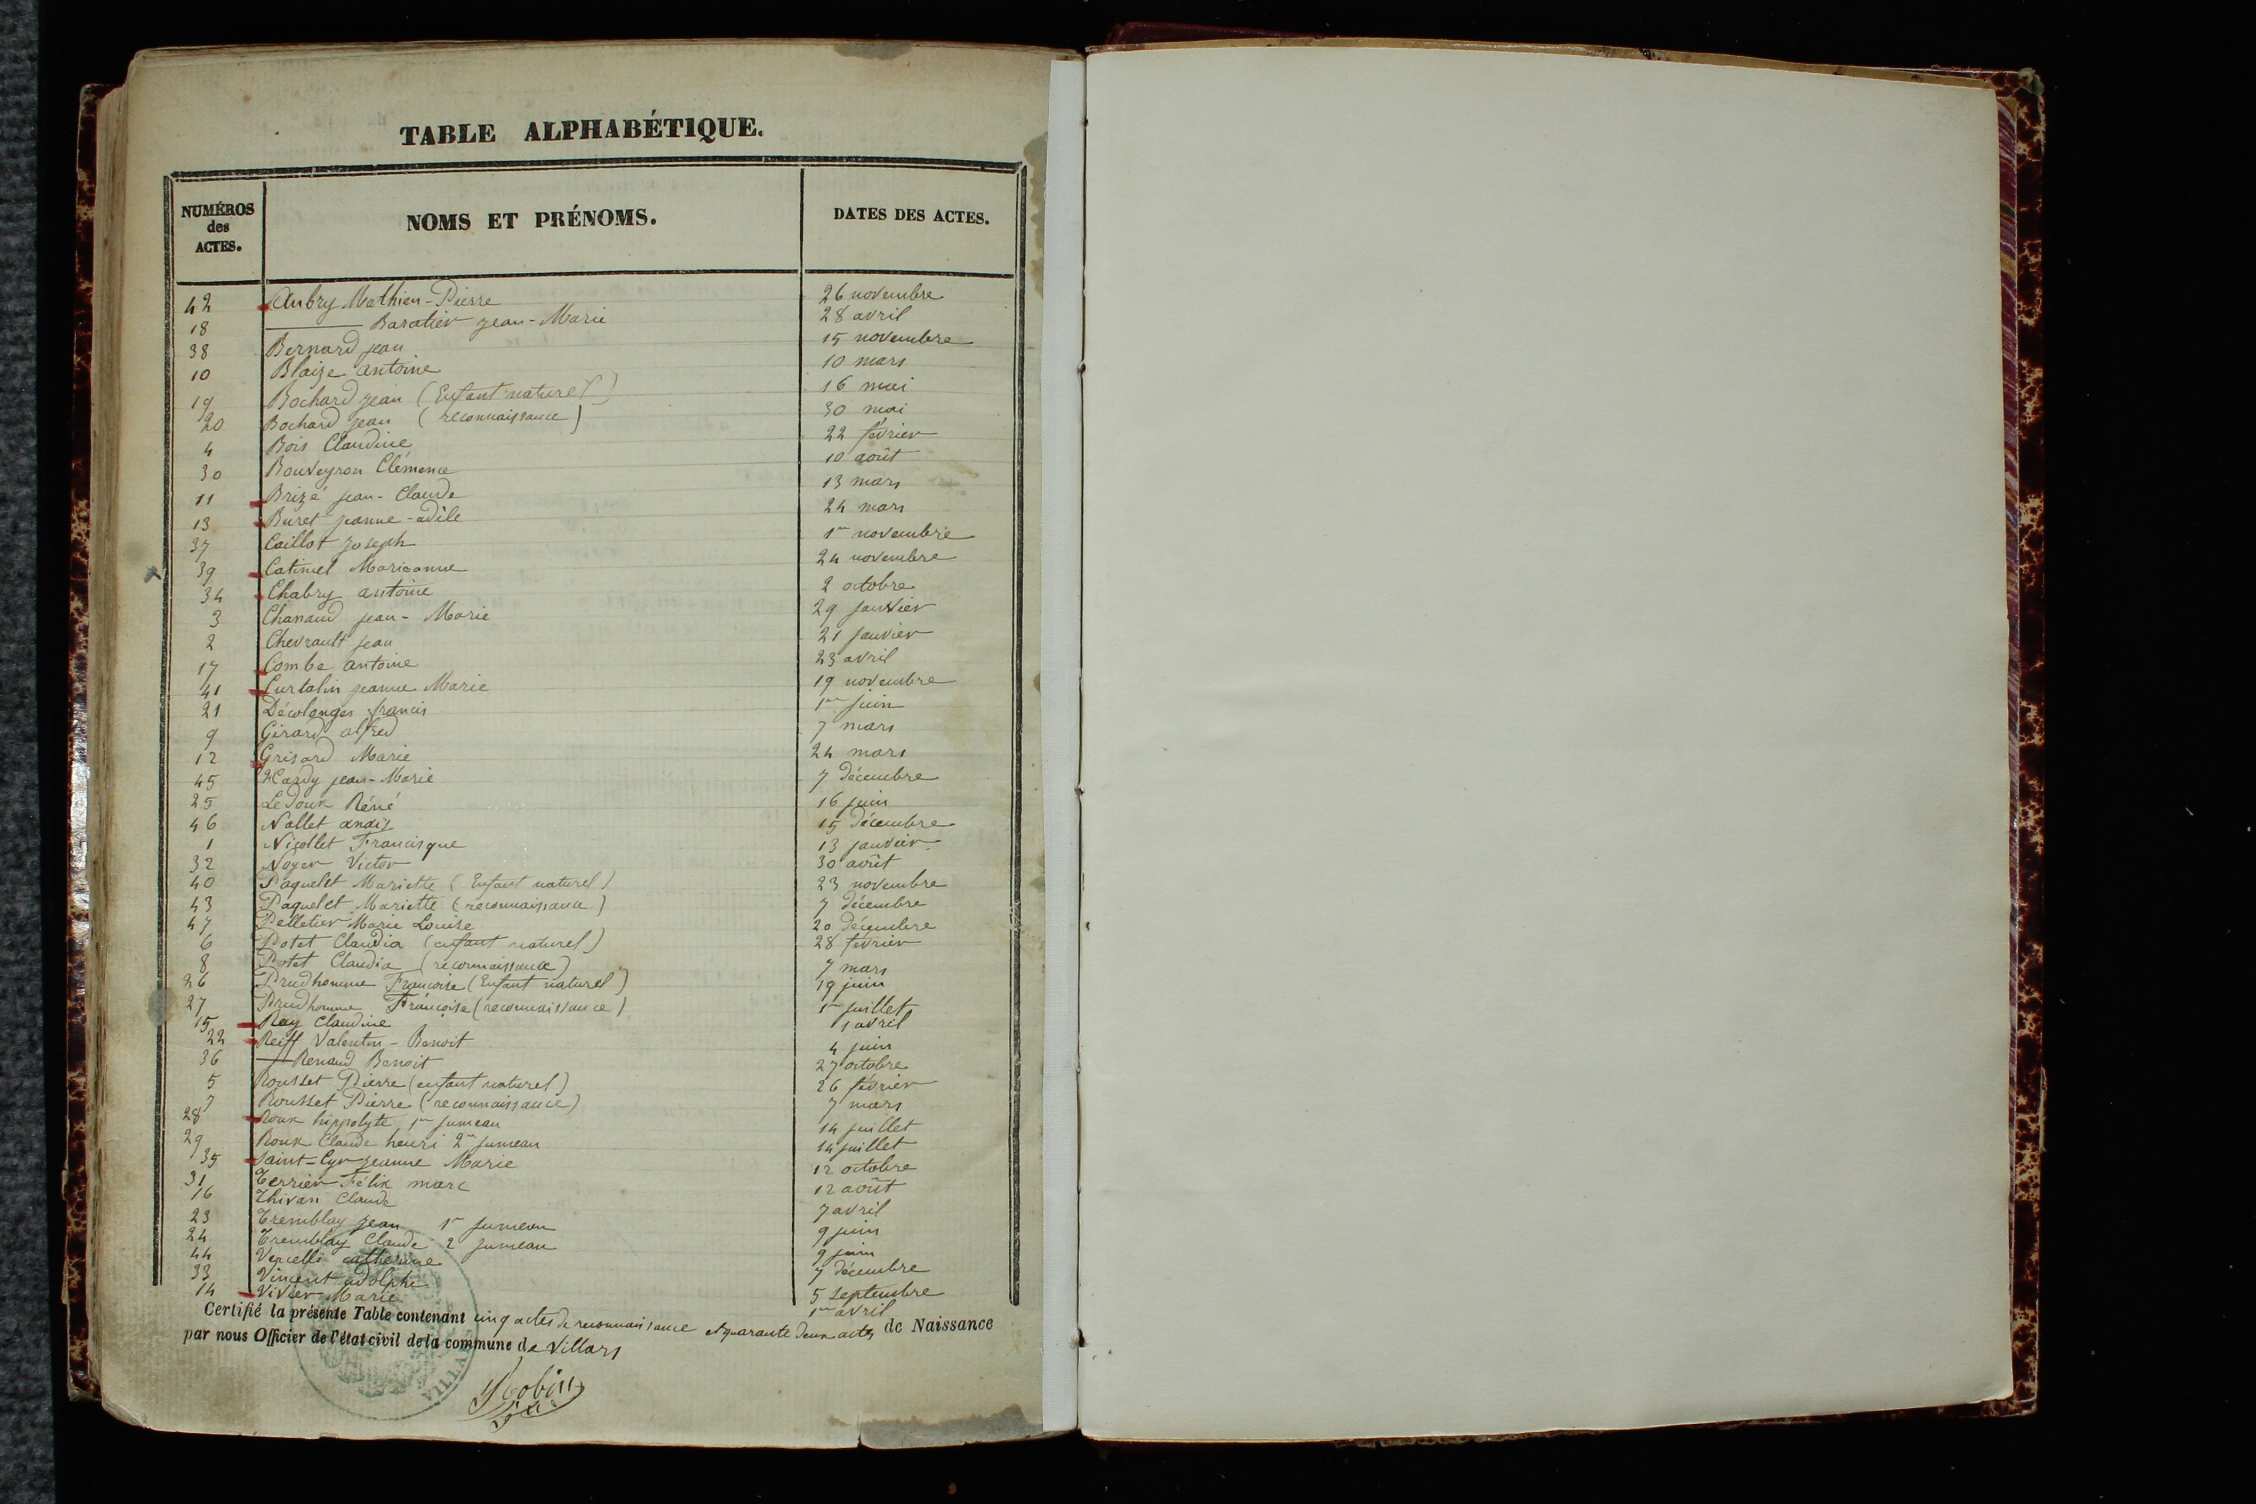 TABLE ALPHABÉTIQUE.
NUMÉROS des ACTES. NOMS ET PRÉNOMS. DATES DES ACTES.
42 Aubry Mathieu-Pierre 26 novembre
18 Baratier jean-Marie 28 avril
38 Bernard jean 15 novembre
10 Blaize antoine 10 mars
19 Bochard jean (Enfant naturel) 16 mai
20 Bochard jean (reconnaissance) 30 mai
4 Bois Claudine 22 février
30 Bouveyron Clémence 10 août
11 Brizé jean-Claude 13 mars
13 Buret jeanne-adèle 24 mars
37 Caillot joseph 1er novembre
39 Catimel Marieanne 24 novembre
34 Chabry antoine 2 octobre
3 Chanaud jean-Marie 29 janvier
2 Chevrault jean 21 janvier
17 Combe antoine 23 avril
41 Curtalin jeanne Marie 19 novembre
21 Décolonges francis 1er juin
9 Girard alfred 7 mars
12 Grisard Marie 24 mars
45 Hardy jean-Marie 7 décembre
25 Ledoux Réné 16 juin
46 Nallet anaïs 15 décembre
1 Nicollet Francisque 13 janvier
32 Noyer Victor 30 août
40 Paquelet Mariette (Enfant naturel) 23 novembre
43 Paquelet Mariette (reconnaissance) 7 décembre
47 Pelletier Marie Louise 20 décembre
6 Potet Claudia (enfant naturel) 28 février
8 Potet Claudia (reconnaissance) 7 mars
26 Prudhomme Françoise (Enfant naturel) 19 juin
27 Prudhomme Françoise (reconnaissance) 1er juillet
15 Ray Claudine 1 avril
22 Reiff Valentin-Benoit 4 juin
36 Renaud Benoit 27 octobre
5 Rousset Pierre (enfant naturel) 26 février
7 Rousset Pierre (reconnaissance) 7 mars
28 Roux hippolyte 1er jumeau 14 juillet
29 Roux Claude henri 2e jumeau 14 juillet
35 Saint-Cyr jeanne Marie 12 octobre
31 Terrier Félix marc 12 août
16 Thivan Claude 7 avril
23 Tremblay jean 1er jumeau 9 juin
24 Tremblay Claude 2 jumeau 9 juin
44 Vercelli catherine 7 décembre
33 Vincent adolphe 5 septembre
14 Vivier Marie 1er avril
Certifié la présente Table contenant cinq actes de reconnaissance et quarante deux actes de Naissance
par nous Officier de l'état civil de la commune de Villars
VILLARS